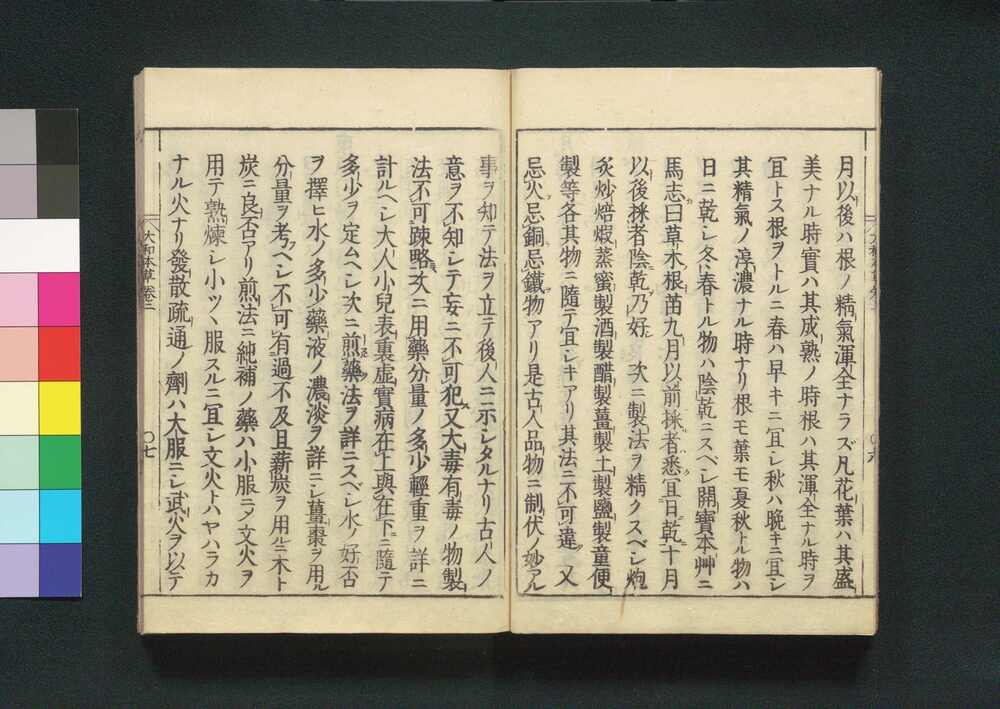 月以後ハ根ノ精氣渾全ナラズ凡花葉ハ其盛
美ナル時實ハ其成熟ノ時根ハ其渾全ナル時ヲ
冝トス根ヲトルニ春ハ早キニ冝シ秋ハ晩キニ冝シ
其精氣ノ淳濃ナル時ナリ根モ葉モ夏秋トル物ハ
日ニ乾シ冬春トル物ハ陰乾ニスベシ開寶本艸ニ
馬志曰草木根苗九月以前採者悉冝日乾十月
以後採者陰乾乃好 次ニ製法ヲ精クスベシ炮
炙炒焙煆蒸蜜製酒製醋製薑製土製鹽製童便
製等各其物ニ隨テ宜シキアリ其法ニ不可違 又
忌火忌銅忌鐵物アリ是古人品物ニ制伏ノ妙アル
大和本草卷之二 〇六
事ヲ知テ法ヲ立テ後人ニ示シタルナリ古人ノ
意ヲ不知シテ妄ニ不可犯又大毒有毒ノ物製
法不可疎略次ニ用藥分量ノ多少輕重ヲ詳ニ
計ルヘシ大人小兒表裏虛實病在上與在下ニ隨テ
多少ヲ定ムヘシ次ニ煎藥法ヲ詳ニスベシ水ノ好否
ヲ擇ヒ水ノ多少藥液ノ濃淡ヲ詳ニシ薑棗ヲ用ル
分量ヲ考フヘシ不可有過不及且薪炭ヲ用ルニ木ト
炭ニ良否アリ煎法ニ純補ノ藥ハ小服ニメ文火ヲ
用テ熟煉シ小ツヽ服スルニ冝シ文火トハヤハラカ
ナル火ナリ發散疏通ノ劑ハ大服ニシ武火ヲ以テ
大和本草卷二 〇七